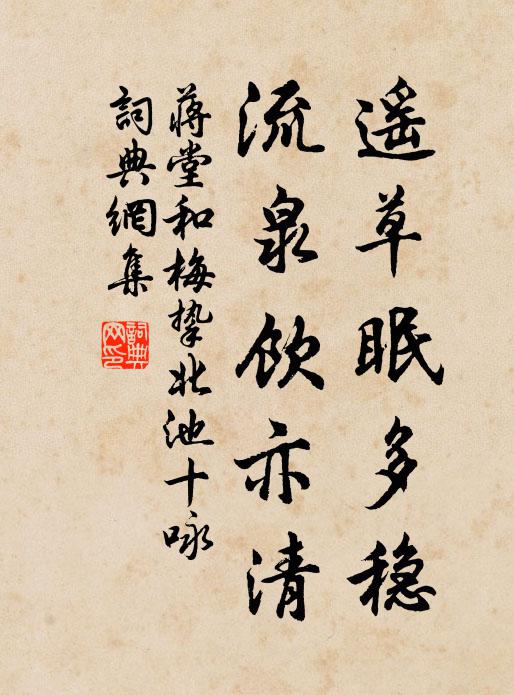 遥草眠多稳
流泉飲亦清
蔣堂和梅挚北池十咏
詞典網集
詞典网印